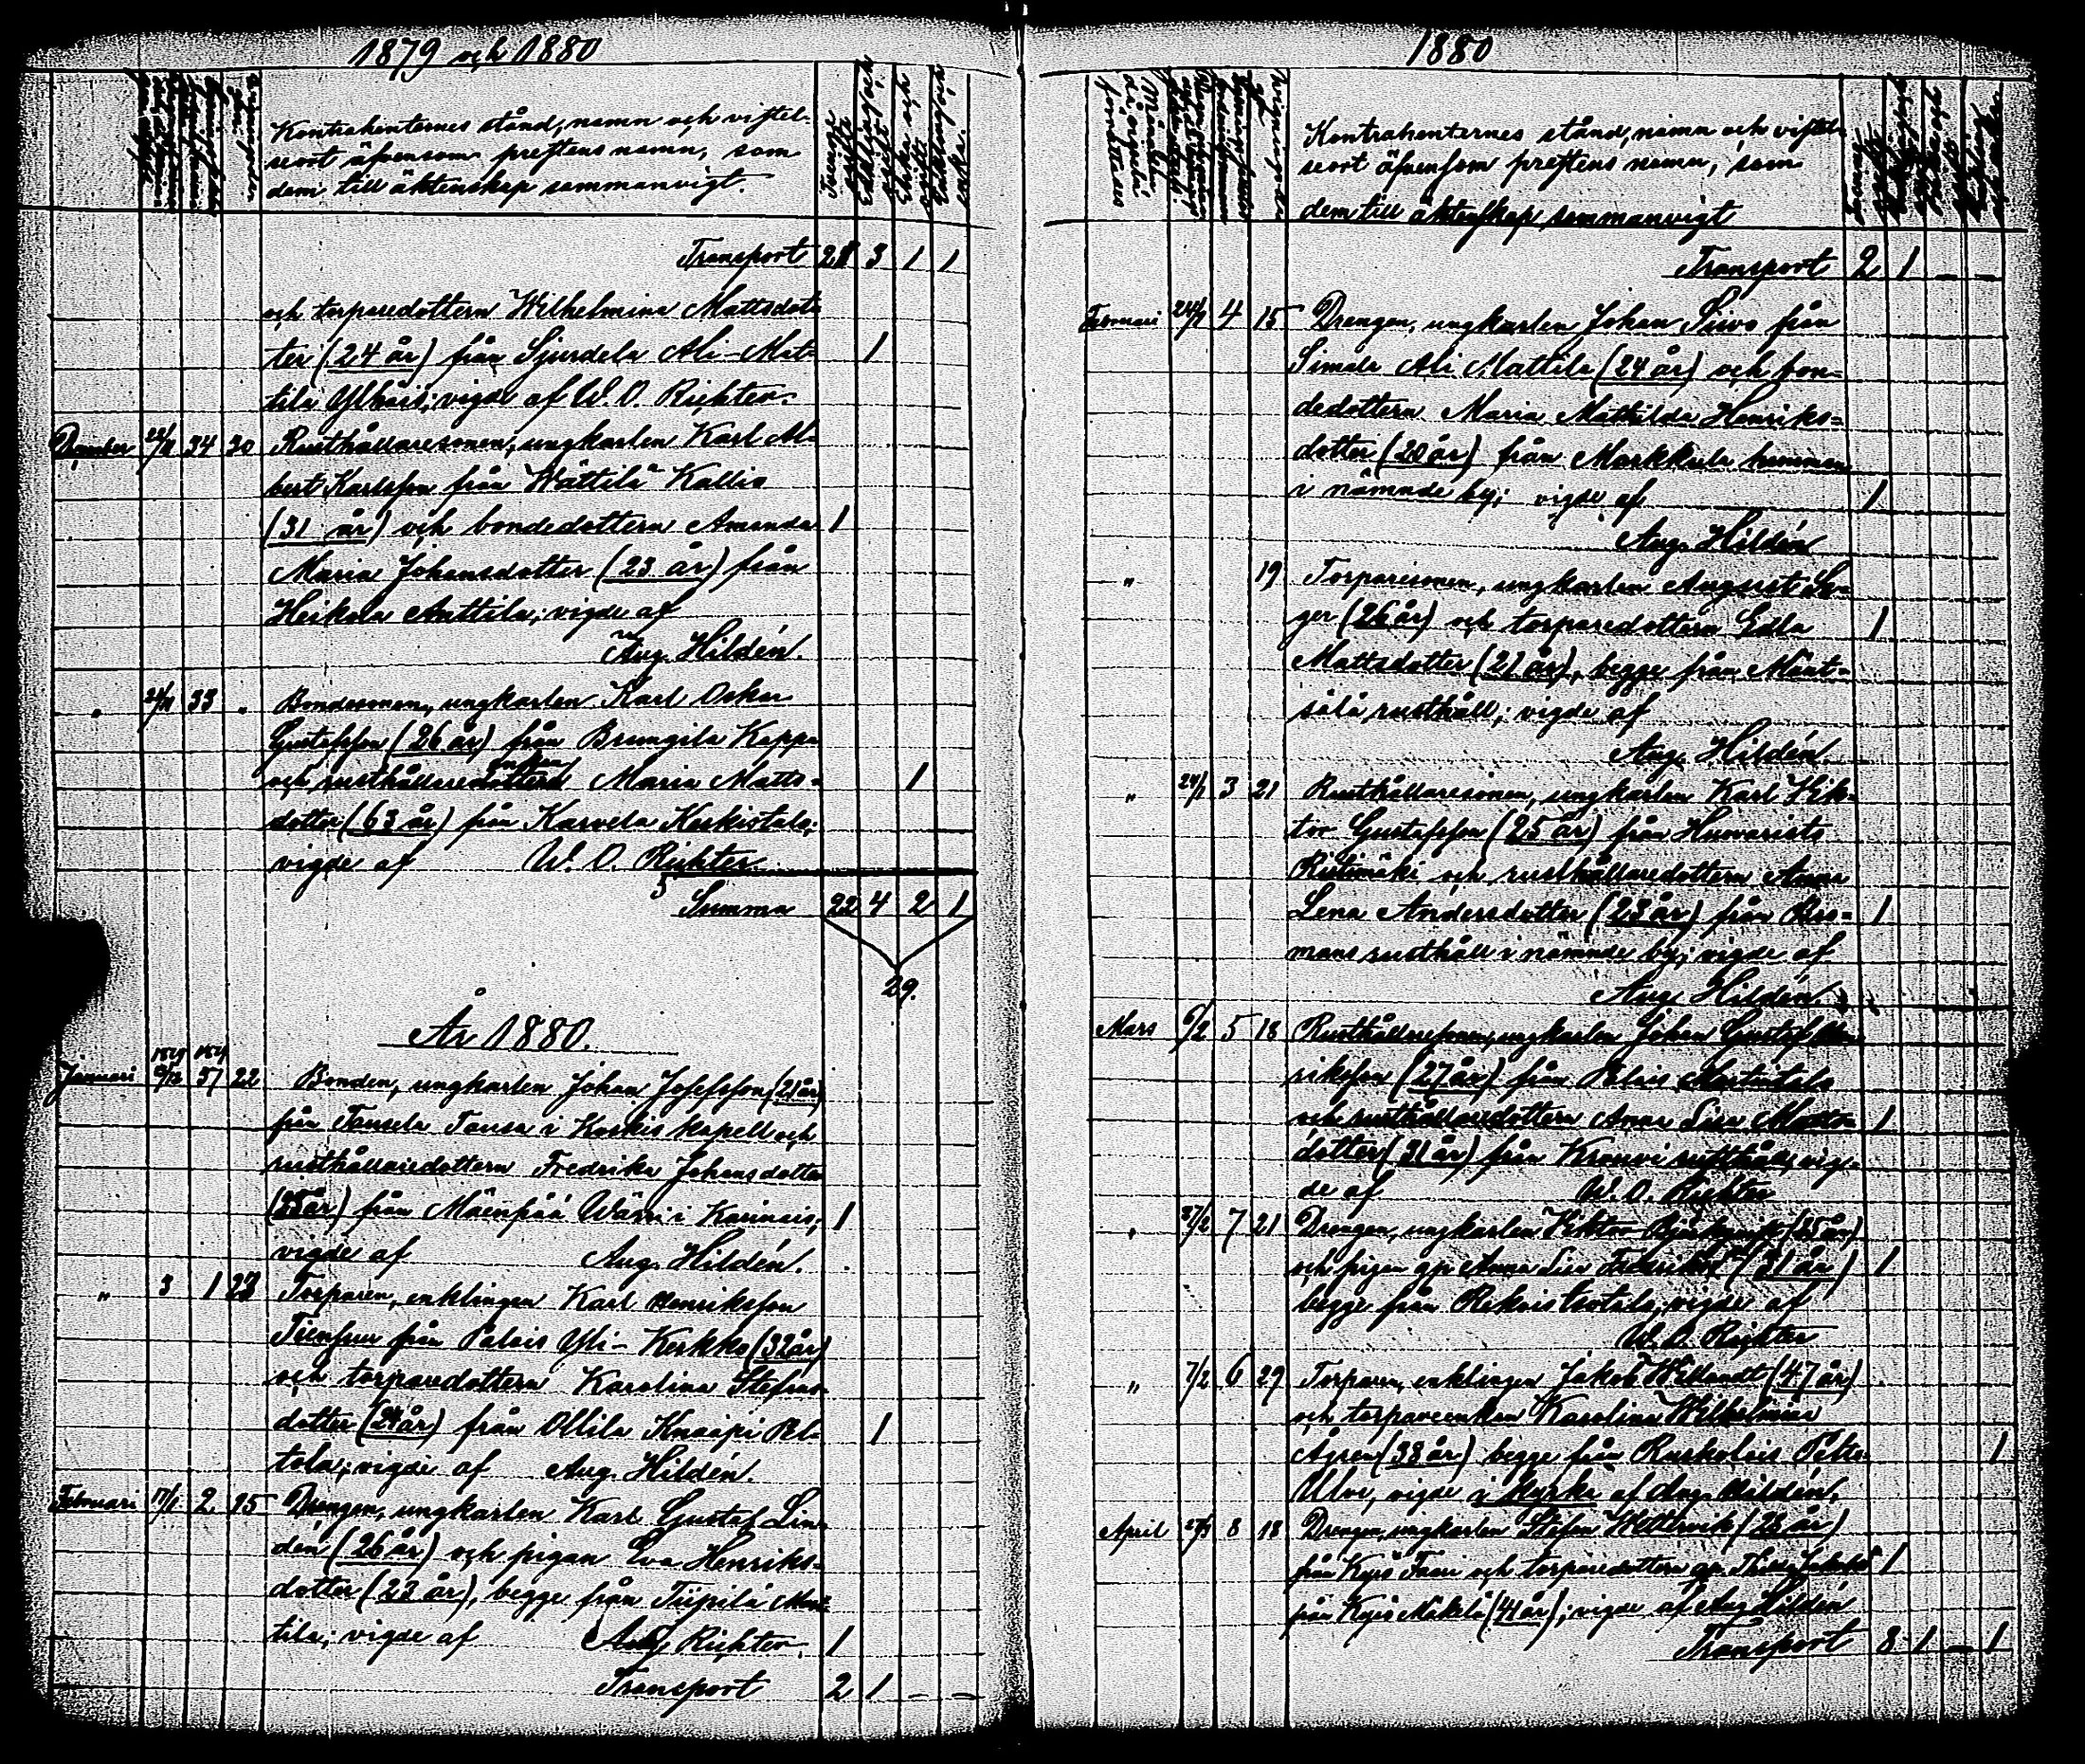 1879 och 1880
Kontrahenternes stånd, namn och vistel-
seort äfvensom prestens namn, som
dem till äktenskap sammanvigt.
Transport 21 3 1 1
och torparedottern Wilhelmina Mattsdot-
ter (24 år) från Sjurdela Ali-Mat- 1
tila Ylhäis; vigde af W. O. Richter.
December 34 30 Rusthållaresonen, ungkarlen Karl Al-
bert Karlsson från Wättilä Kallio
(31 år) och bondedottern Amanda 1
Maria Johansdotter (23 år) från
Heikola Anttila; vigde af
Aug. Hildén.
" 33 " Bondesonen, ungkarlen Karl Oskar
Gustafsson (26 år) från Brungila Kappa
och rusthållareenkan Maria Matts- 1
dotter (63 år) från Karvela Keskistalo;
vigde af W. O. Richter.
Summa 22 4 2 1
29.
År 1880.
Januari 57 22 Bonden, ungkarlen Johan Josefsson (21 år)
från Tansela Tansa i Koskis kapell och
rusthållaredottern Fredrika Johansdotter
(25 år) från Mäenpää Wärri i Karinais; 1
vigde af Aug. Hildén.
" 3 1 23 Torparen, enklingen Karl Henriksson
från Palais Yli-Kerkko (32 år)
och torparedottern Karolina Stefans-
dotter (24 år) från Ollila Knaapi Pel- 1
tola; vigde af Aug. Hildén.
Februari 17/1 2 15 Drengen, ungkarlen Karl Gustaf Lin-
dén (26 år) och pigan Eva Henriks-
dotter (23 år), begge från Tiipilä Mat-
tila; vigde af Richter. 1
Transport 2 1 – –
1880
Kontrahenternes stånd, namn och vistel-
seort äfvensom prestens namn, som
dem till äktenskap sammanvigt
Transport 2 1 – –
Februari 24/1 4 15 Drengen, ungkarlen Johan Siivo från
Simala Ali Mattila (24 år) och bon-
dedottern Maria Mathilda Henriks-
dotter (20 år) från Markkula hemman
i nämnde by; vigde af 1
Aug. Hildén
" 19 Torparesonen, ungkarlen August
ger (26 år) och torparedottern Edla 1
Mattsdotter (21 år), begge från Mänt-
sälä rusthåll; vigde af
Aug. Hildén.
" 24/1 3 21 Rusthållaresonen, ungkarlen Karl Vik-
tor Gustafsson (25 år) från Huovarists
Riihimäki och rusthållaredottern Anna
Lena Andersdotter (23 år) från Bro- 1
mans rusthåll i nämnde by; vigde af
Aug. Hildén.
Mars 6/2 5 18 Rusthållaresonen, ungkarlen Johan Gustaf Hen-
riksson (27 år) från Palais Marttistalo
och rusthållaredottern Anna Lisa Matts- 1
dotter (31 år) från Krouvi rusthåll, vig-
de af W. O. Richter
" 27/2 7 21 Drengen, ungkarlen Viktor (25 år)
och pigan qp Anna Lisa (31 år) 1
begge från Isotalo; vigde af
W. O. Richter
" 7/2 6 29 Torparen, enklingen Jakob Willandt (47 år)
och torpareenkan Karolina Wilhelmina
Ågren (38 år) begge från Ruskolais Pelto- 1
Ulvi, vigde i kyrka af Aug. Hildén.
April 8 18 Drengen, ungkarlen Stefan (28 år)
från Kyrö och torparedottern qp 1
från Kyrö Mäkilä (41 år); vigde af Aug Hildén
Transport 8 1 – 1